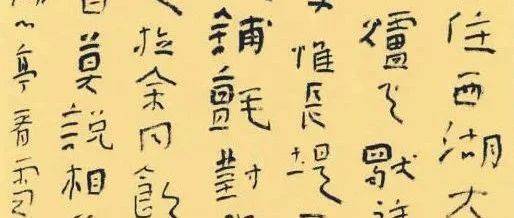 住西湖大
爐火獨
惟長堤
鋪氈對
拉余同飲
莫說相
心亭看雪